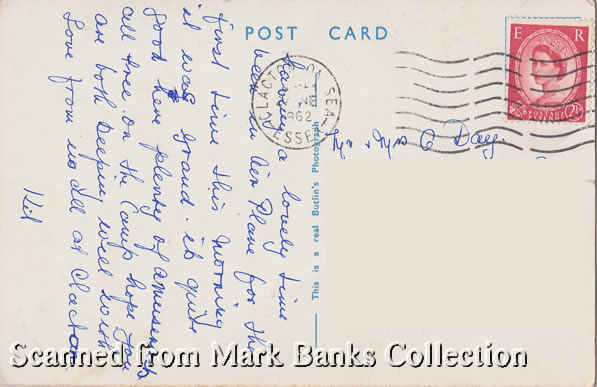 POST CARD
having a lovely time
been in Air Plane for the
first time this morning
it was grand. its quite
good here plenty of amusements
all free on the Camp hope you
are both keeping well with
Love from us all at Clacton
Kit
CLACTON ON SEA
1962
ESSEX
E R
POSTAGE
2½
Mr & Mrs O Day
This is a real Butlin's Photograph
Scanned from Mark Banks Collection